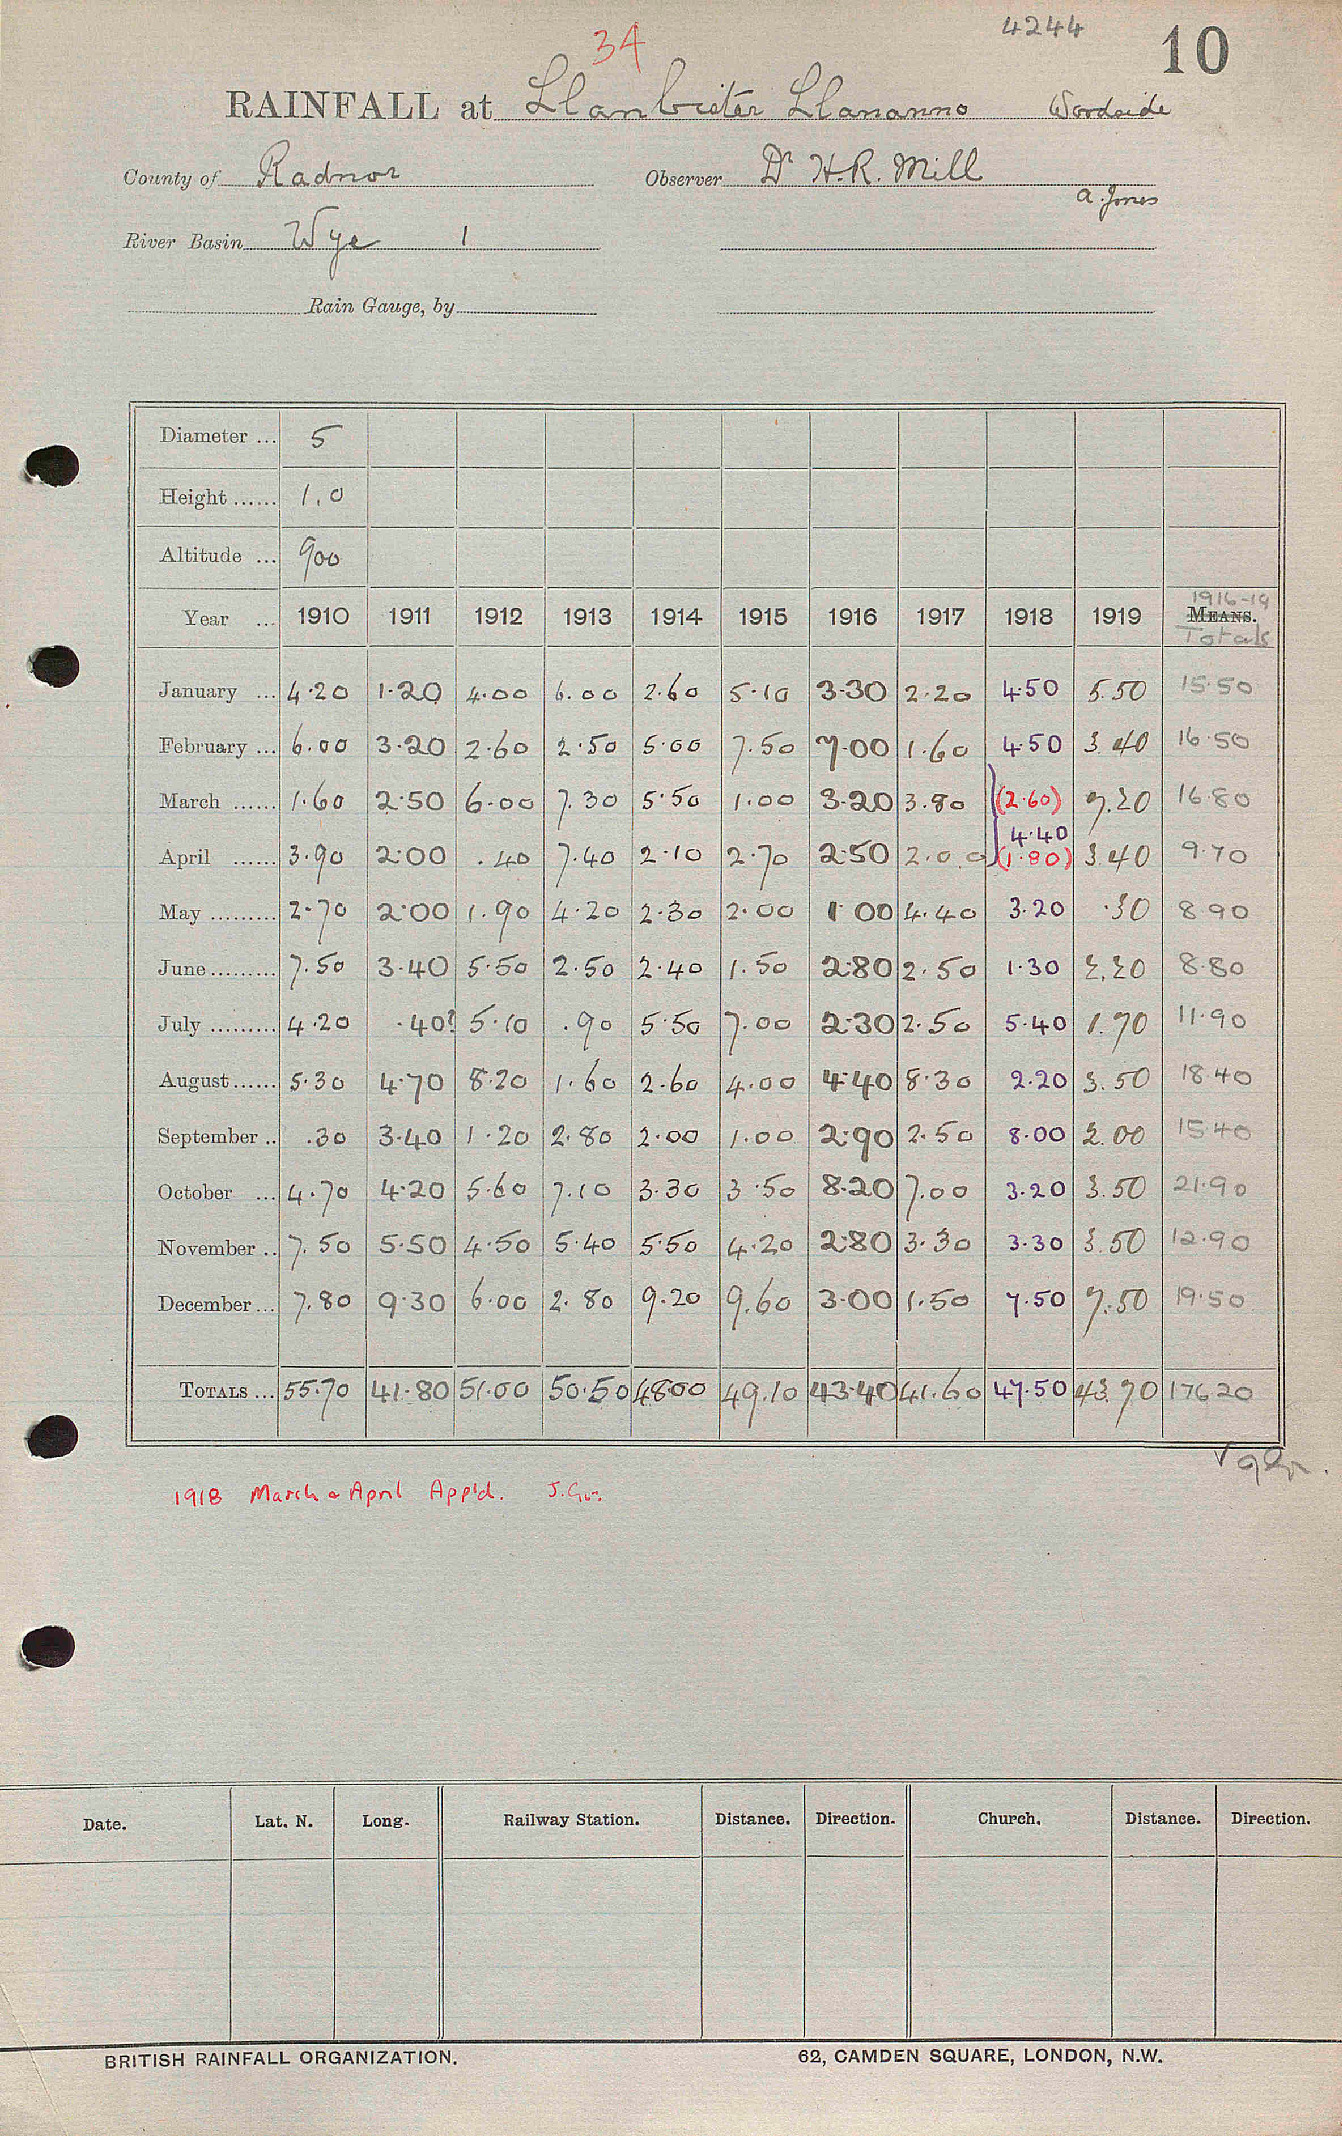 34
4244
10
RAINFALL at Llanbister Llananno Woodside
County of Radnor Observer Dr H.R. Mill
A. Jones
River Basin Wye 1
Rain Gauge, by
Diameter ... 5
Height ...... 1.0
Altitude ... 900
1916-19
Year ... 1910 1911 1912 1913 1914 1915 1916 1917 1918 1919 MEANS.
Totals
January ... 4.20 1.20 4.00 6.00 2.60 5.10 3.30 2.20 4.50 5.50 15.50
February ... 6.00 3.20 2.60 2.50 5.00 7.50 7.00 1.60 4.50 3.40 16.50
March ...... 1.60 2.50 6.00 7.30 5.50 1.00 3.20 3.80 (2.60) 7.20 16.80
4.40
April ...... 3.90 2.00 .40 7.40 2.10 2.70 2.50 2.00 (1.80) 3.40 9.70
May ......... 2.70 2.00 1.90 4.20 2.30 2.00 1.00 4.40 3.20 .30 8.90
June ......... 7.50 3.40 5.50 2.50 2.40 1.50 2.80 2.50 1.30 2.20 8.80
July ......... 4.20 .40? 5.10 .90 5.50 7.00 2.30 2.50 5.40 1.70 11.90
August ...... 5.30 4.70 8.20 1.60 2.60 4.00 4.40 8.30 2.20 3.50 18.40
September .. .30 3.40 1.20 2.80 2.00 1.00 2.90 2.50 8.00 2.00 15.40
October ... 4.70 4.20 5.60 7.10 3.30 3.50 8.20 7.00 3.20 3.50 21.90
November .. 7.50 5.50 4.50 5.40 5.50 4.20 2.80 3.30 3.30 3.50 12.90
December ... 7.80 9.30 6.00 2.80 9.20 9.60 3.00 1.50 7.50 7.50 19.50
TOTALS ... 55.70 41.80 51.00 50.50 48.00 49.10 43.40 41.60 47.50 43.70 176.20
1918 March & April App'd.
Date. Lat. N. Long. Railway Station. Distance. Direction. Church. Distance. Direction.
BRITISH RAINFALL ORGANIZATION. 62, CAMDEN SQUARE, LONDON, N.W.